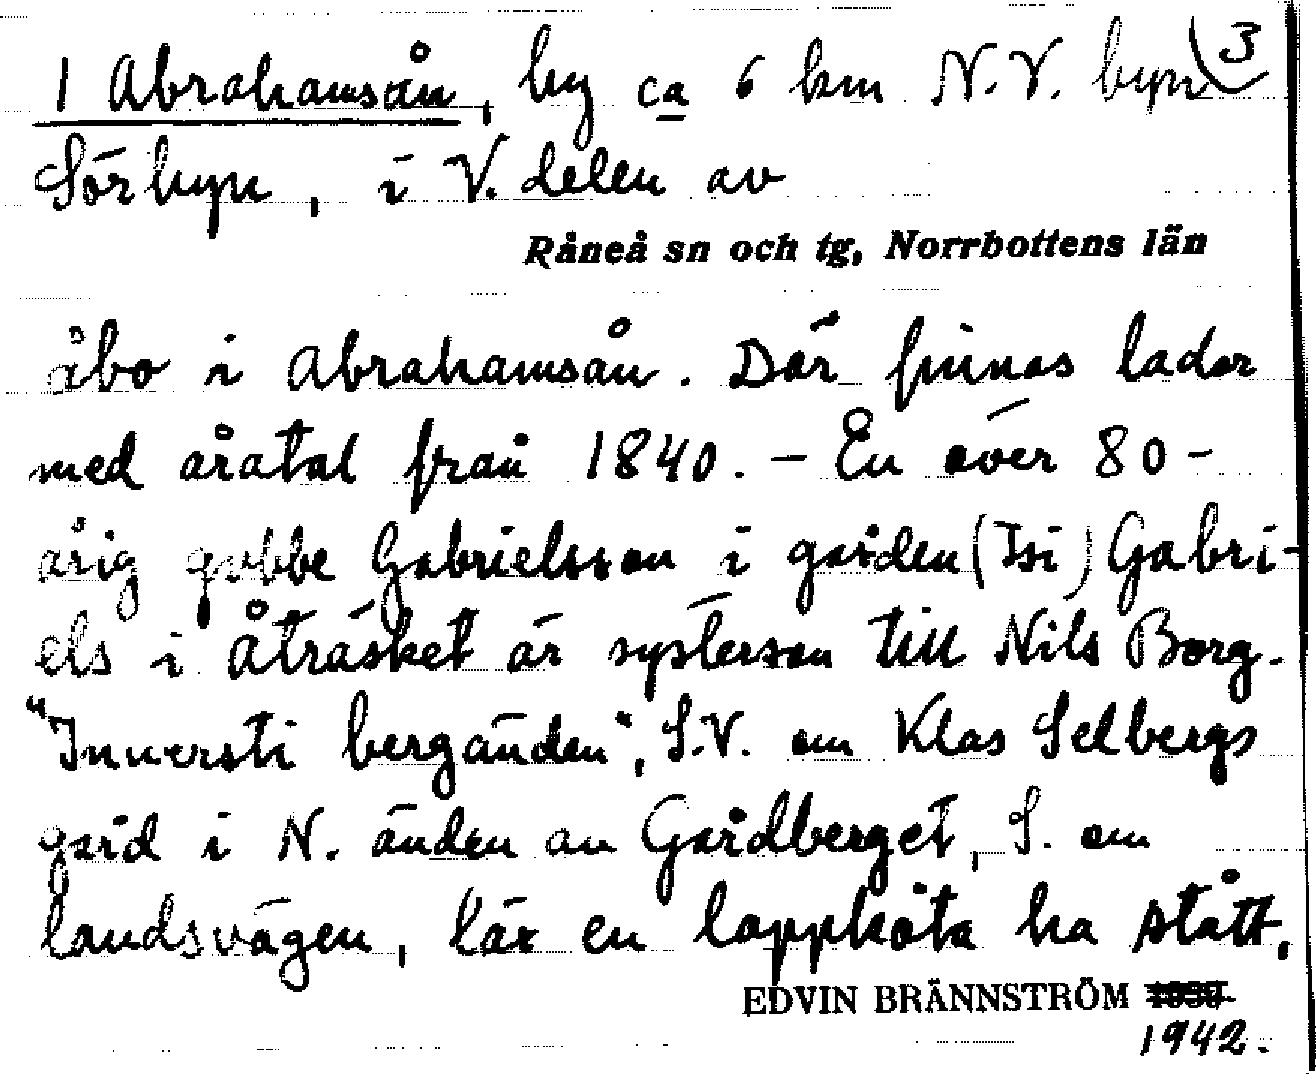 1 Abrahamsån, by ca 6 km N.V. byn 3
Sörbyn, i V. delen av
Råneå sn och tg, Norrbottens län
åbo i Abrahamsån. Där finnas lador
med åratal från 1840. – En över 80-
årig gubbe Gabrielsson i gården (Isi) Gabri-
els i Åträsket är systerson till Nils Borg.
"Innersti bergänden", S.V. om Klas Selbergs
gård i N. änden av Gårdberget, S. om
landsvägen, lär en lappkåta ha stått.
EDVIN BRÄNNSTRÖM
1942.